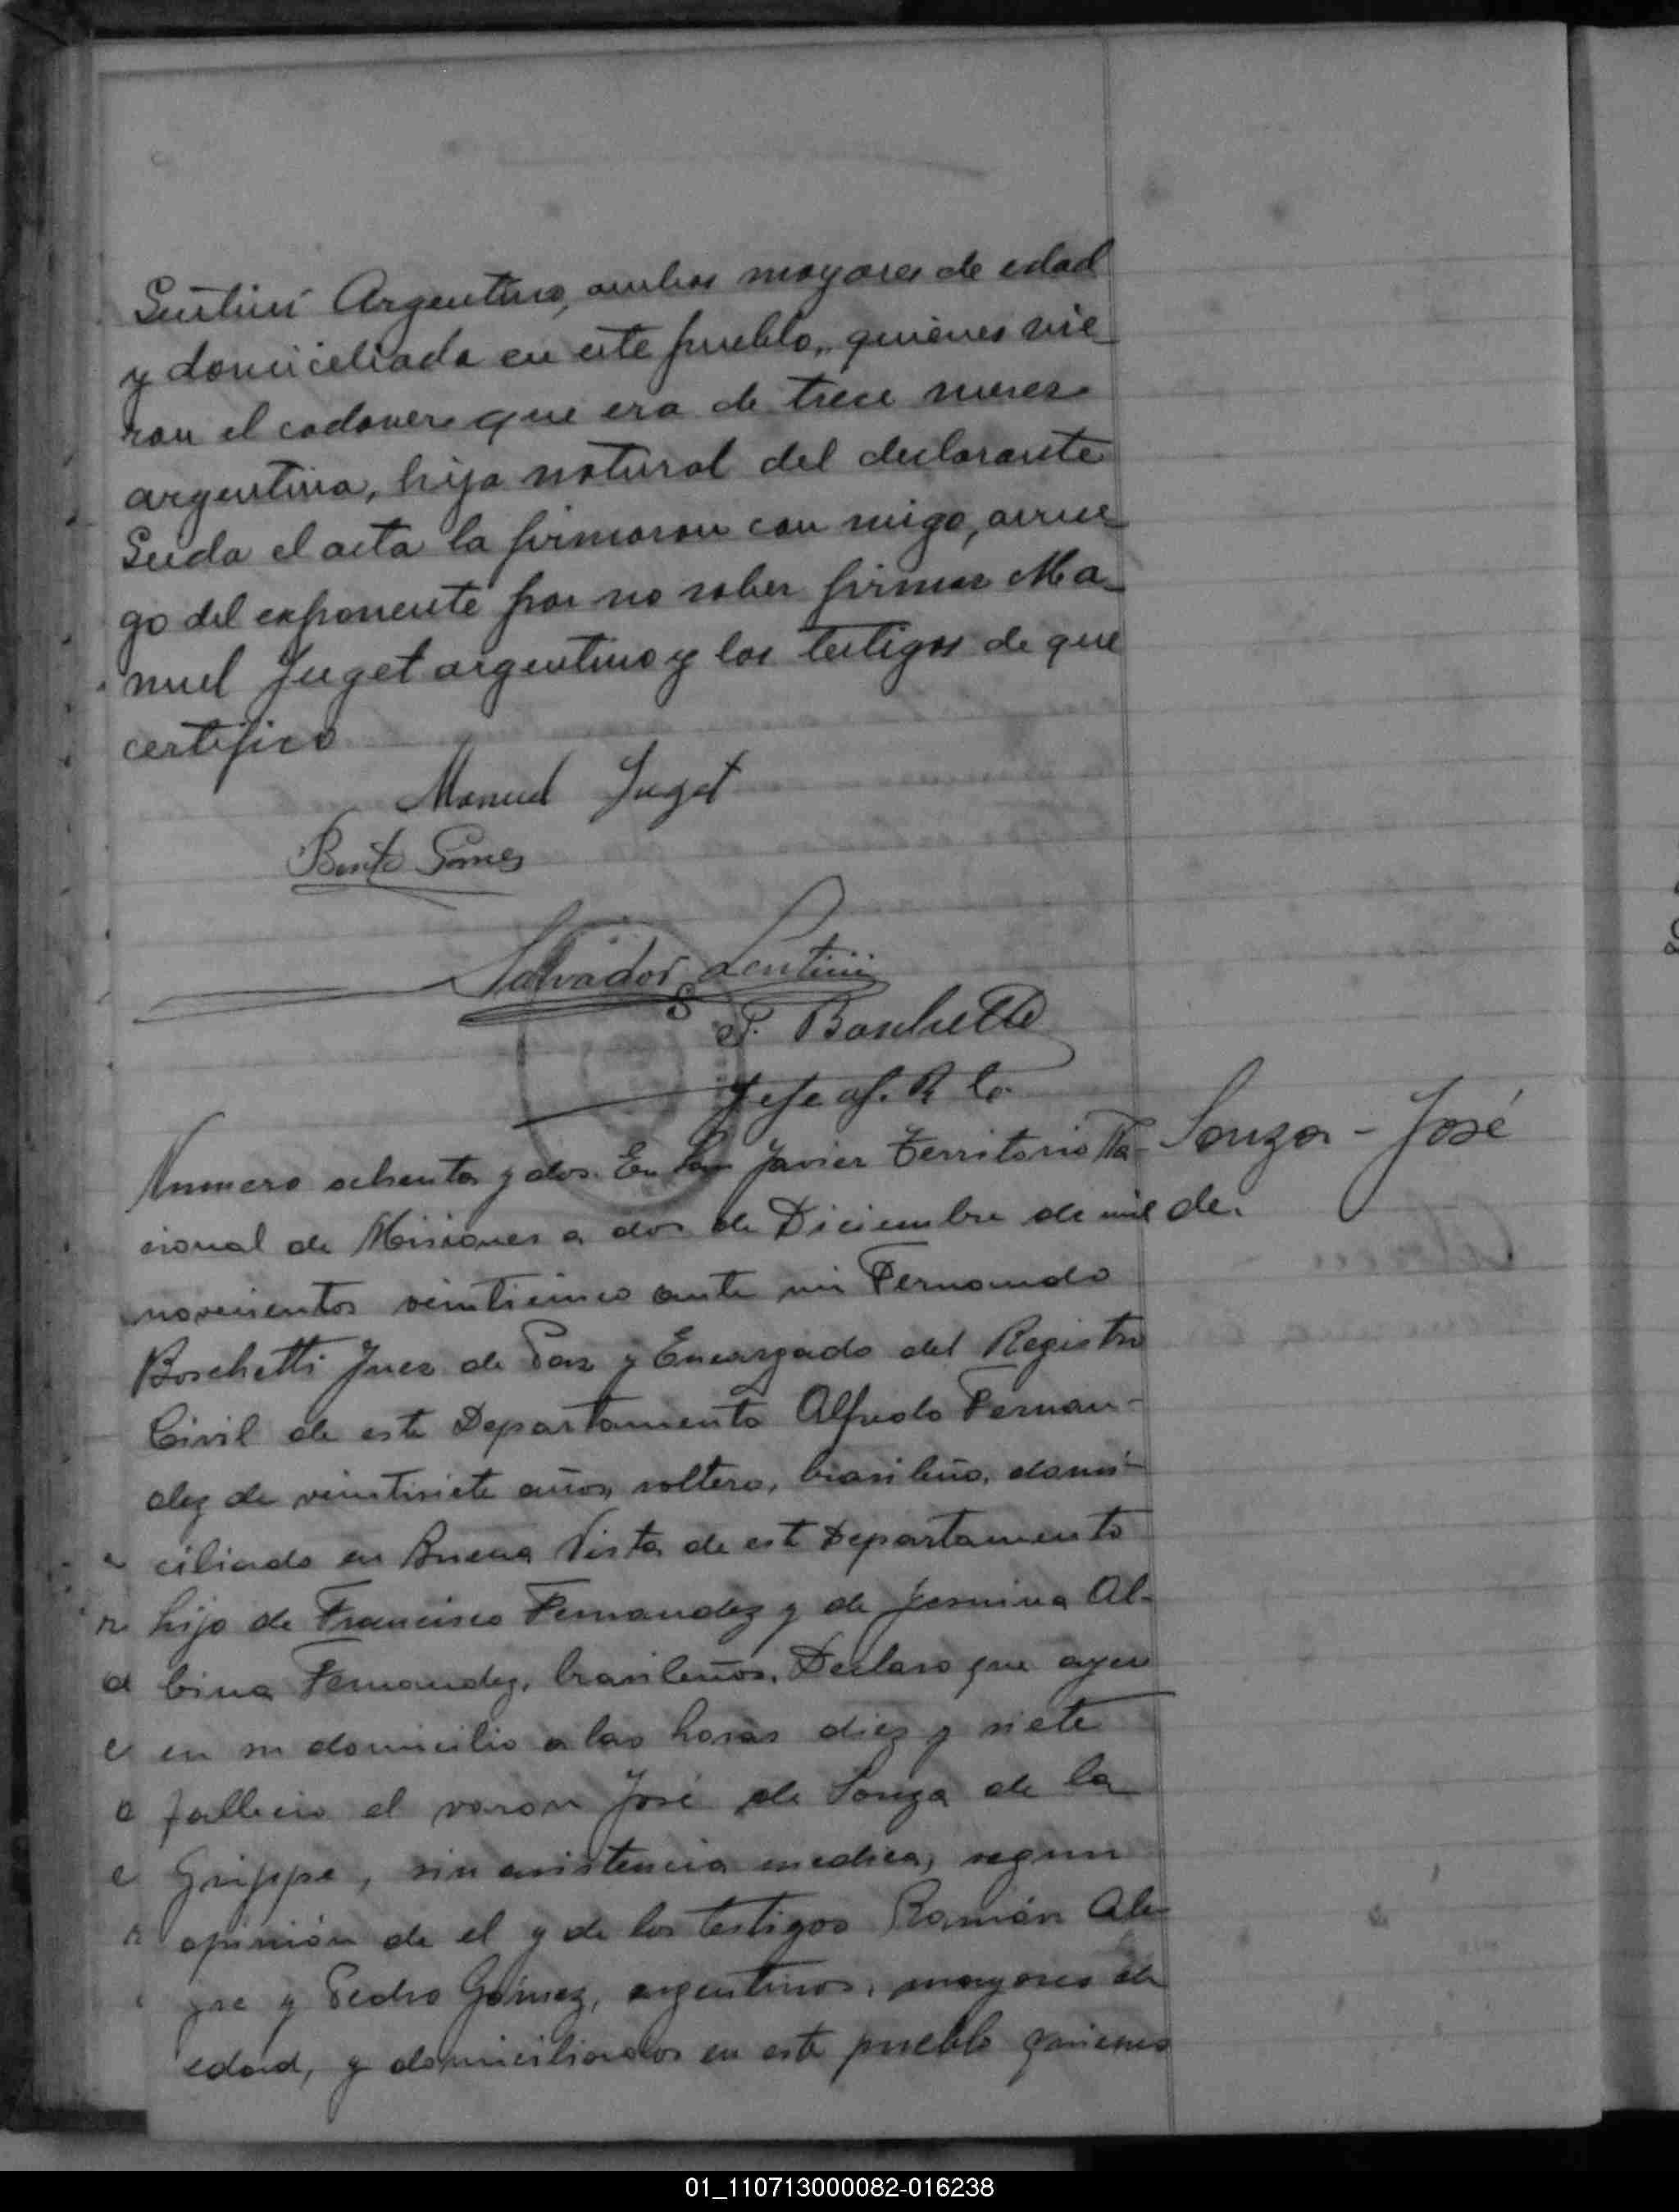 Lentini Argentino, ambos mayores de edad
y domiciliada en este pueblo, quienes vie-
ron el cadaver que era de trece meses
argentina, hija natural del declarante
Leida el acta la firmaron con migo, arrue-
go del exponente por no saber firmar Ma-
nuel Juget argentino y los testigos de que
certifico
Manuel Juget
Bento Gomes
Salvador Lentini
F. Boschetti
Jefe of. R. C.
Souza - José
de.
Numero ochenta y dos. En San Javier Territorio Na-
cional de Misiones a dos de Diciembre de mil
novecientos veinticinco ante mi Fernando
Boschetti Juez de Paz y Encargado del Registro
Civil de este Departamento Alfredo Fernan-
dez de veintisiete años, soltero, brasileño, domi-
ciliado en Buena Vista de este Departamento
hijo de Francisco Fernandez y de Jesuina Al-
bina Fernandez, brasileños. Declaro que ayer
en su domicilio a las horas diez y siete
fallecio el varon José de Souza de la
Grippe, sin asistencia medica, segun
opinión de el y de los testigos Ramón Ale-
gre y Pedro Gómez, argentinos, mayores de
edad, y domiciliados en este pueblo quienes
01_110713000082-016238